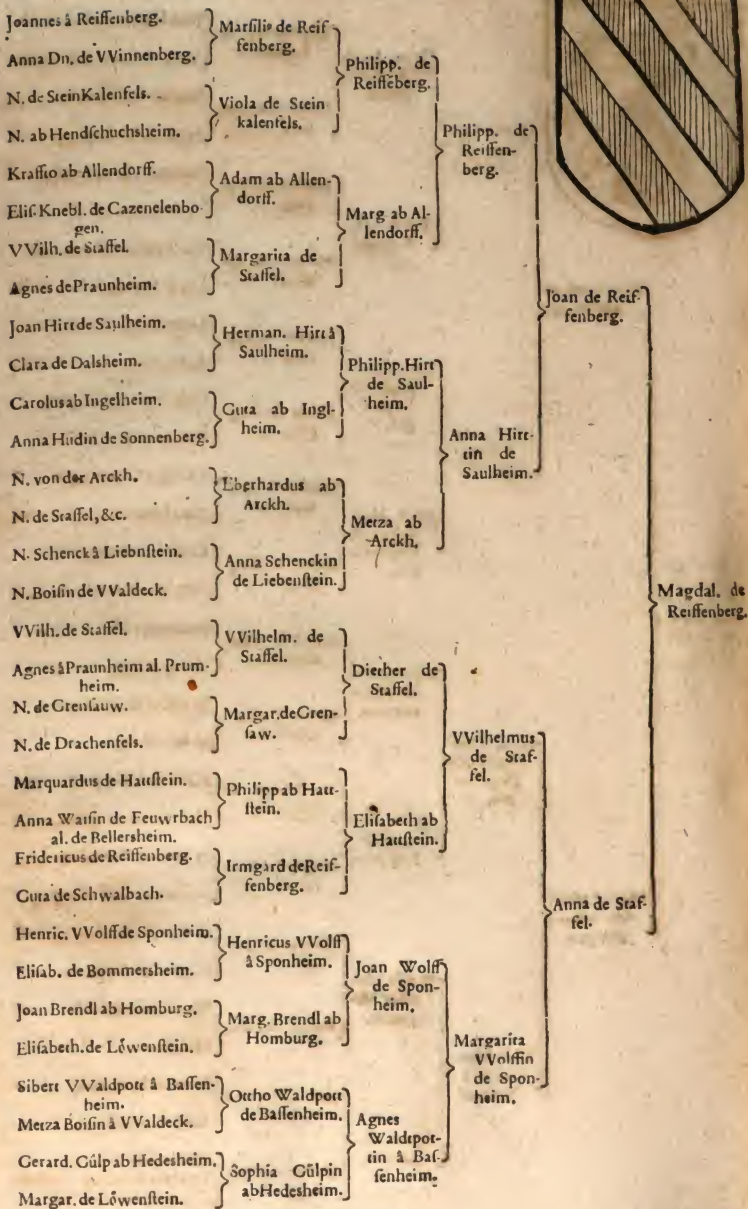 Joannes â Reiffenberg.
Anna Dn. de VVinnenberg.
N. de SteinKalenfels.
N. ab Hendſchuchsheim.
Kraffto ab Allendorff.
Eliſ. Knebl. de Cazenelenbo-
gen.
VVilh. de Staffel.
Agnes de Praunheim.
Joan Hirt de Saulheim.
Clara de Dalsheim.
Carolus ab Ingelheim.
Anna Hudin de Sonnenberg.
N. von der Arckh.
N. de Staffel, &c.
N. Schenck â Liebnſtein.
N. Boiſin de VValdeck.
VVilh. de Staffel.
Agnes â Praunheim al. Prum-
heim.
N. de Grenſauw.
N. de Drachenfels.
Marquardus de Hattſtein.
Anna Waiſin de Feuwrbach
al. de Bellersheim.
Fridericus de Reiffenberg.
Guta de Schwalbach.
Henric. VVolff de Sponheim.
Eliſab. de Bommersheim.
Joan Brendl ab Homburg.
Eliſabeth. de Lôwenſtein.
Sibert VValdpott â Baſſen-
heim.
Metza Boiſin â VValdeck.
Gerard. Gûlp ab Hedesheim.
Margar. de Lôwenſtein.
Marſiliꝰ de Reif
fenberg.
Viola de Stein
kalenfels.
Adam ab Allen-
dorff.
Margarita de
Staffel.
Herman. Hirt â
Saulheim.
Guta ab Ingl-
heim.
Eberhardus ab
Arckh.
Anna Schenckin
de Liebenſtein.
VVilhelm. de
Staffel.
Margar. de Gren-
ſaw.
Philipp ab Hatt-
ſtein.
Irmgard de Reif-
fenberg.
Henricus VVolff
â Sponheim.
Marg. Brendl ab
Homburg.
Ottho Waldpott
de Baſſenheim.
Sophia Gûlpin
ab Hedesheim.
Philipp. de
Reiffēberg.
Marg ab Al-
lendorff.
Philipp. Hirt
de Saul-
heim.
Metza ab
Arckh.
Diether de
Staffel.
Eliſabeth ab
Hattſtein.
Joan Wolff
de Spon-
heim.
Agnes
Waldtpot-
tin â Baſ-
ſenheim.
Philipp. de
Reiffen-
berg.
Anna Hirt-
tin de
Saulheim.
VVilhelmus
de Staf-
fel.
Margarita
VVolffin
de Spon-
heim.
Joan de Reif-
fenberg.
Anna de Staf-
fel.
Magdal. de
Reiffenberg.